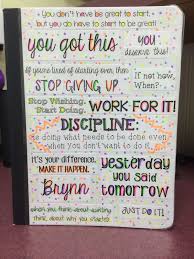 you don't have to be great to start,
but you do have to start to be great!
you got this
you
deserve this!
if you're tired of starting over then
STOP GIVING UP
if not now,
When?
Stop Wishing.
Start Doing.
WORK FOR IT!
DISCIPLINE:
doing what needs to be done even
when you don't want to do it.
it's your difference.
MAKE IT HAPPEN.
yesterday
you said
tomorrow
Brynn
when you think about quitting
think about why you started
JUST DO IT!